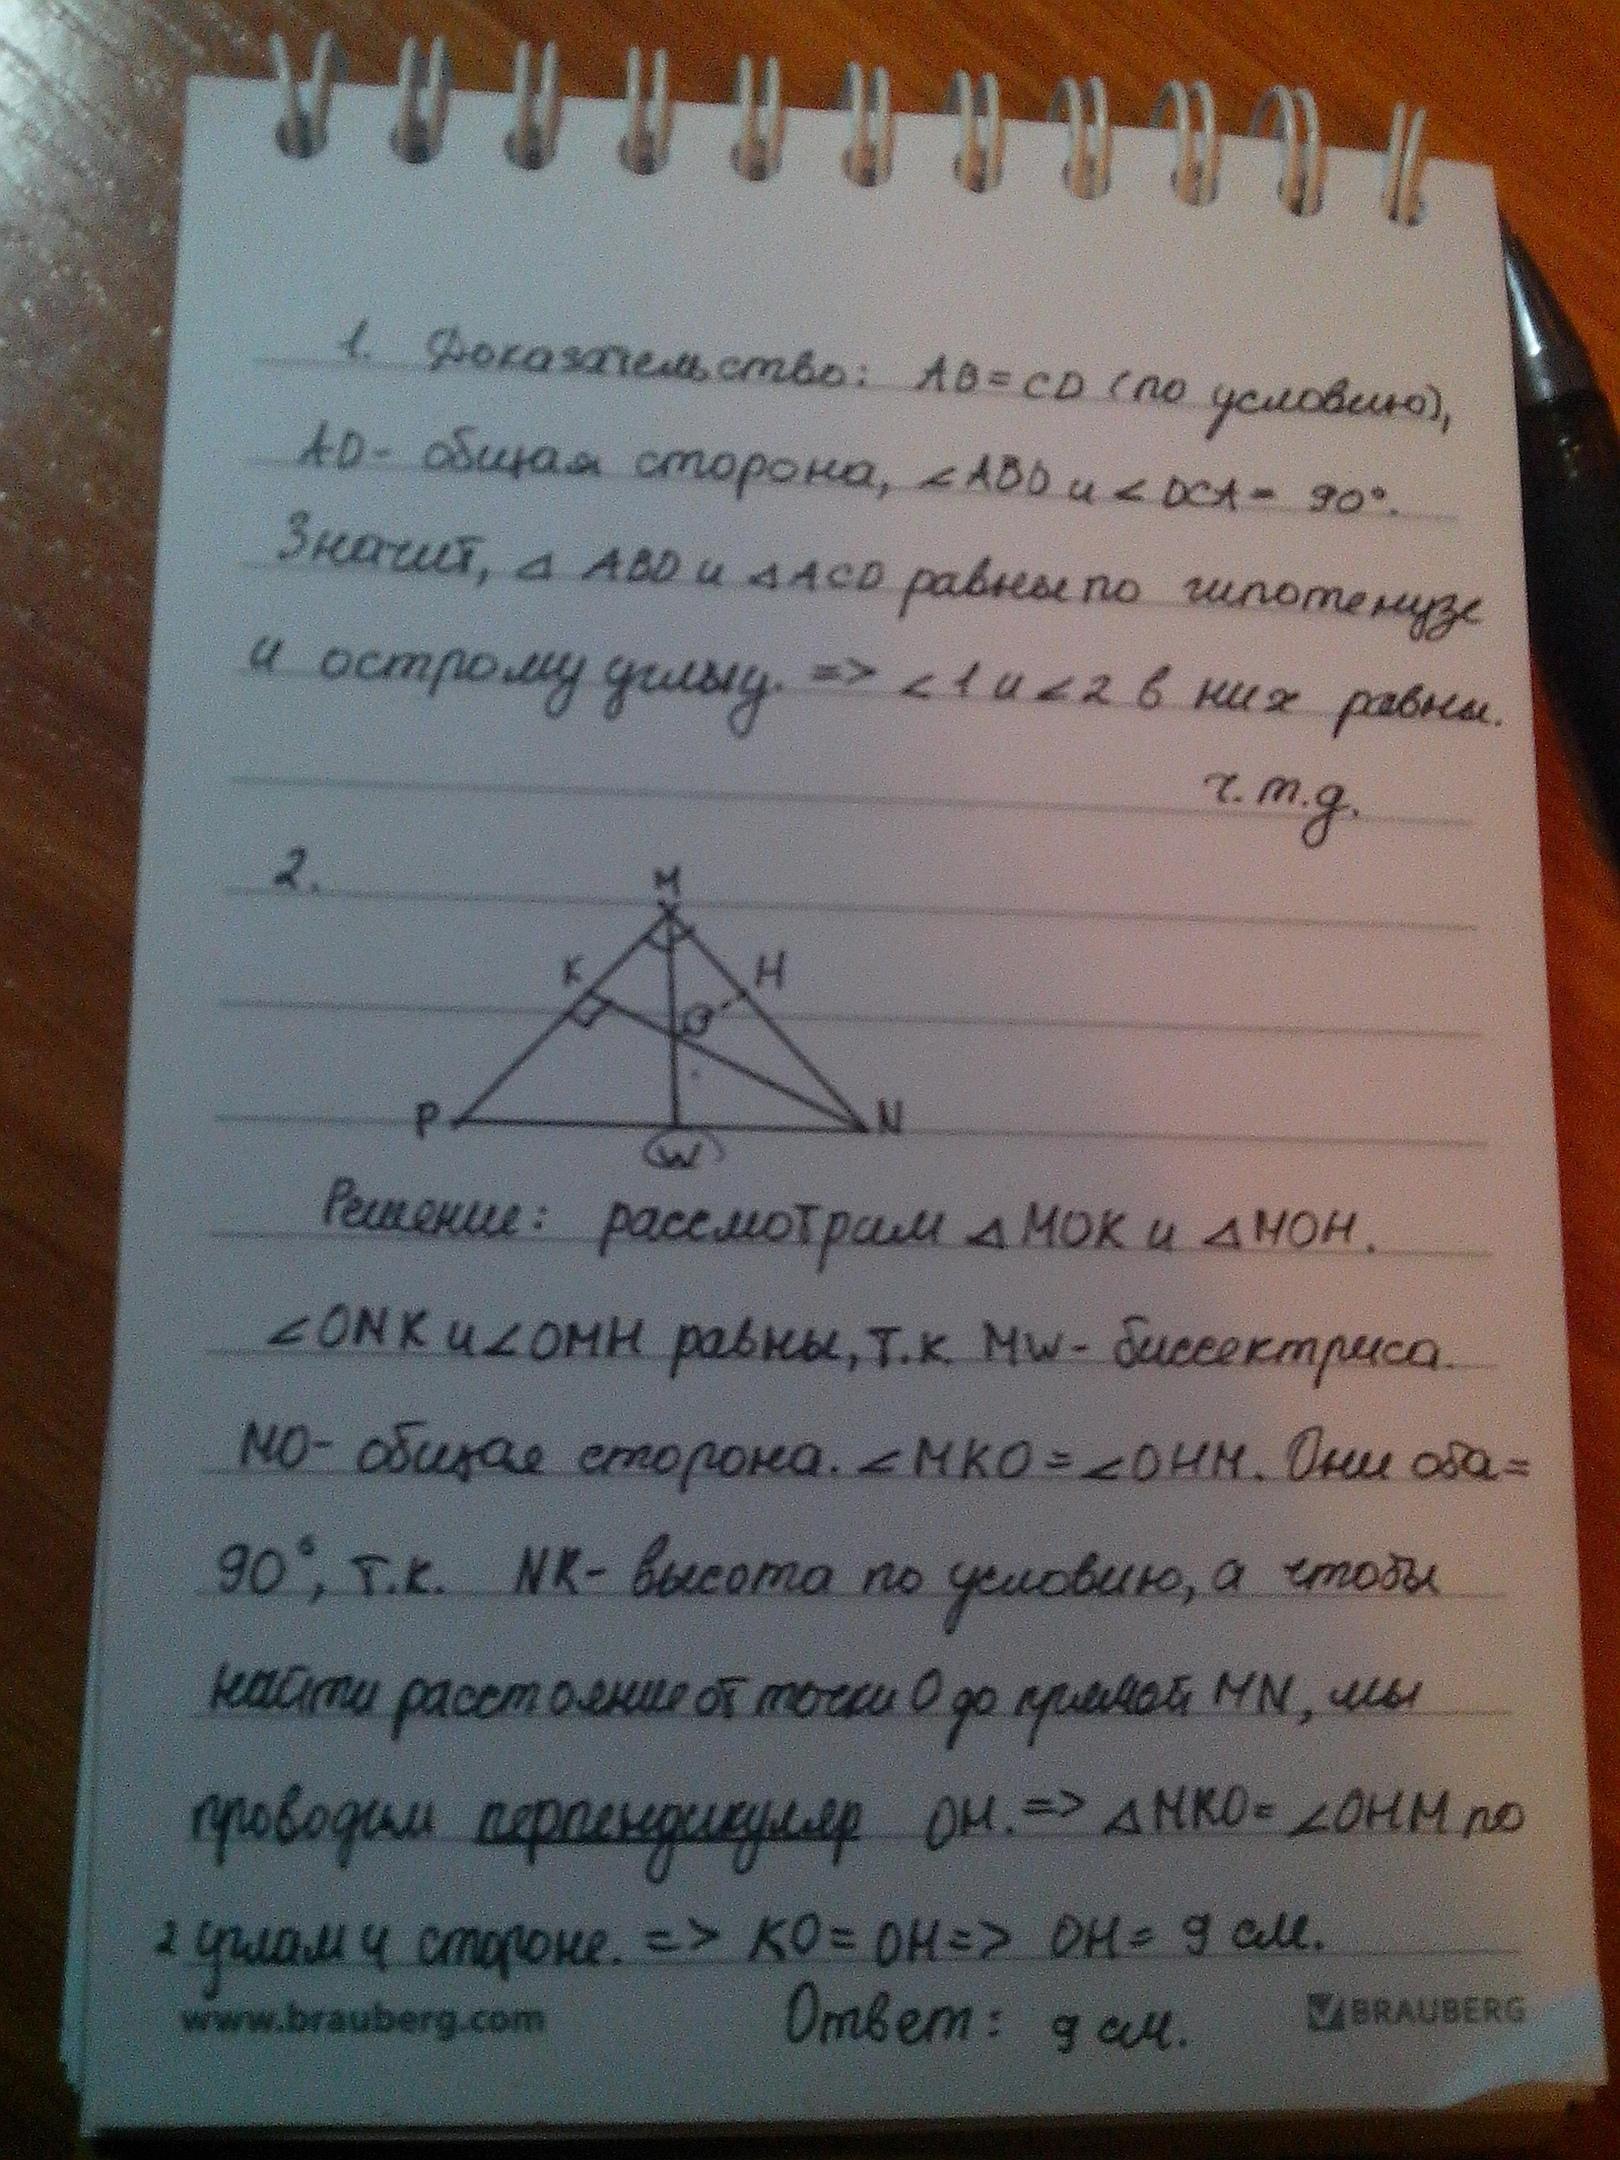 1. Доказательство: AB = CD (по условию),
AD - общая сторона, ∠ABD и ∠DCA = 90°.
Значит, △ ABD и △ACD равны по гипотенузе
и острому углыу. => ∠1 и ∠2 в них равны.
ч.т.д.
2.
M
K H
O
P N
W
Решение: рассмотрим △MOK и △MOH.
∠OMK и ∠OMH равны, т.к. MW - биссектриса.
MO - общая сторона. ∠MKO = ∠OHM. Они оба =
90°, т.к. NK - высота по условию, а чтобы
найти расстояние от точки O до прямой MN, мы
проводим перпендикуляр OH. => △MKO = ∠OHM по
2 углам и стороне. => KO = OH => OH = 9 см.
Ответ: 9 см.
www.brauberg.com BRAUBERG